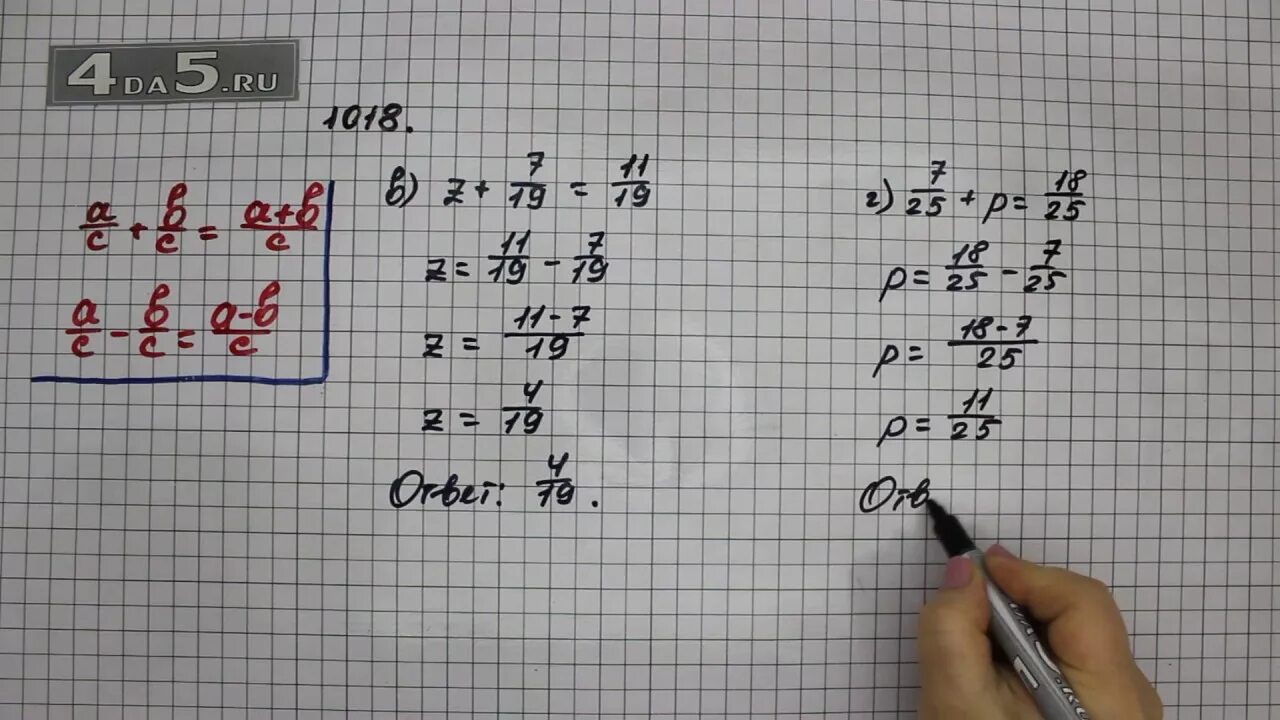 4DA5.RU
1018.
a/c + b/c = a+b/c
a/c - b/c = a-b/c
в) z + 7/19 = 11/19
z = 11/19 - 7/19
z = 11-7/19
z = 4/19
Ответ: 4/19.
г) 7/25 + p = 18/25
p = 18/25 - 7/25
p = 18-7/25
p = 11/25
Отв